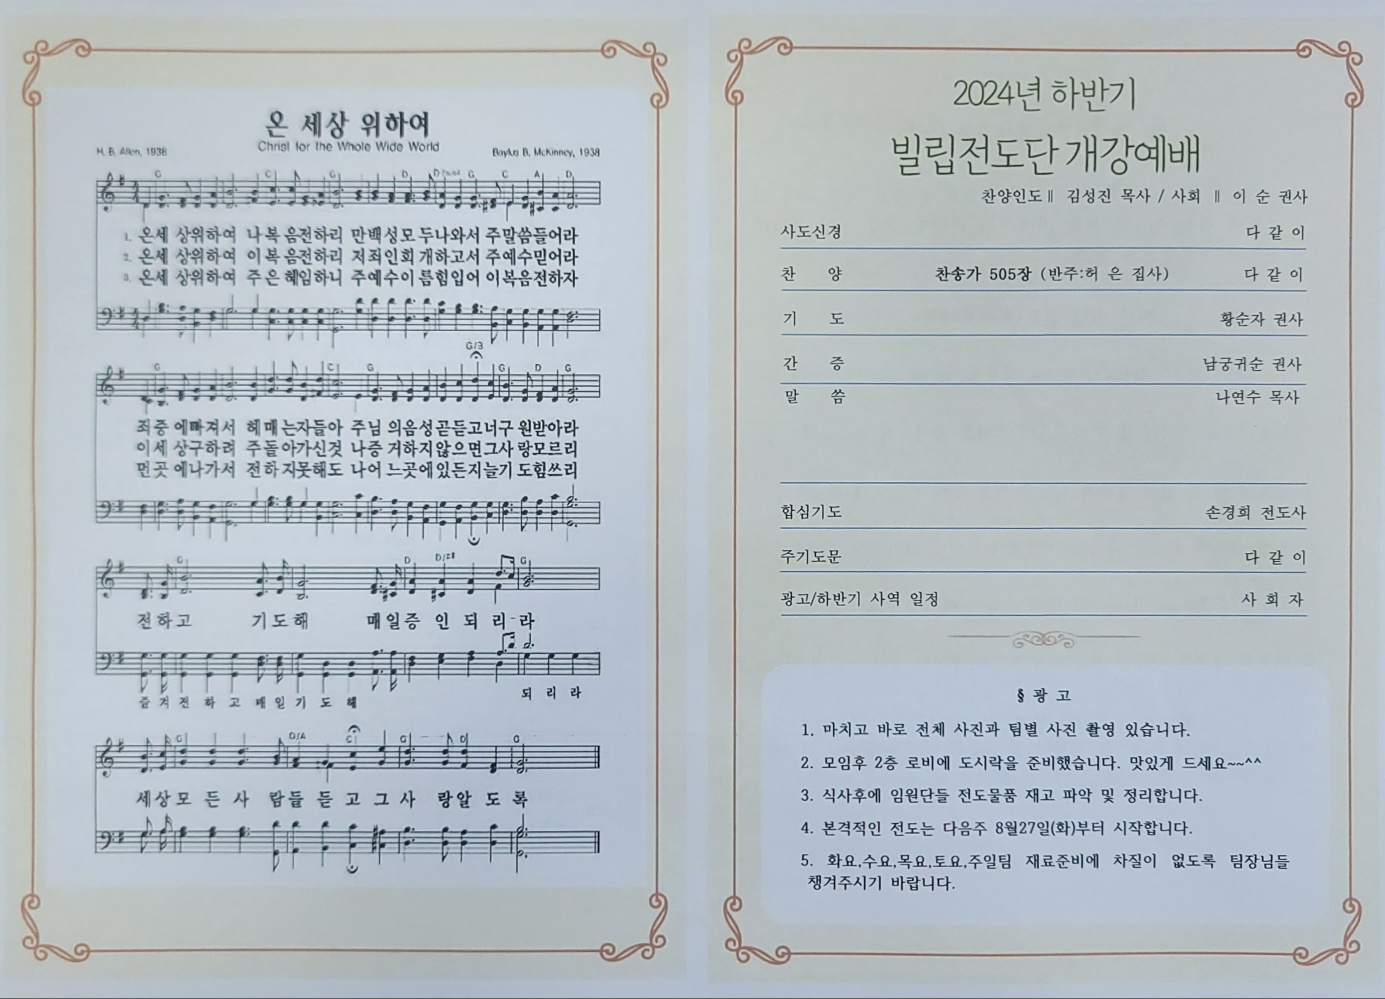 온 세상 위하여
Christ for the Whole Wide World
H. B. Allen, 1938
Baylus B. McKinney, 1938
G C G D D7sus4 G C A D
1. 온세 상위하여 나복 음전하리 만백성모 두나와서 주말씀들어라
2. 온세 상위하여 이복 음전하리 저죄인회 개하고서 주예수믿어라
3. 온세 상위하여 주은 혜임하니 주예수이 름힘입어 이복음전하자
G/B
G C G G D G
죄중 에빠져서 헤매 는자들아 주님 의음성곧듣고너구 원받아라
이세 상구하려 주돌 아가신것 나증 거하지않으면그사 랑모르리
먼곳 에나가서 전하 지못해도 나어 느곳에있든지늘기 도힘쓰리
G D G
전하고 기도해 매일증 인 되 리-라
즐겨 전 하 고 매 일 기 도 해 되 리 라
G D/A C G D G
세상모 든 사 람들 듣 고 그 사 랑알 도 록
2024년 하반기
빌립전도단 개강예배
찬양인도 ∥ 김성진 목사 / 사회 ∥ 이 순 권사
사도신경 다 같 이
찬 양 찬송가 505장 (반주:허 은 집사) 다 같 이
기 도 황순자 권사
간 증 남궁귀순 권사
말 씀 나연수 목사
합심기도 손경희 전도사
주기도문 다 같 이
광고/하반기 사역 일정 사 회 자
§ 광 고
1. 마치고 바로 전체 사진과 팀별 사진 촬영 있습니다.
2. 모임후 2층 로비에 도시락을 준비했습니다. 맛있게 드세요~~^^
3. 식사후에 임원단들 전도물품 재고 파악 및 정리합니다.
4. 본격적인 전도는 다음주 8월27일(화)부터 시작합니다.
5. 화요,수요,목요,토요,주일팀 재료준비에 차질이 없도록 팀장님들
챙겨주시기 바랍니다.